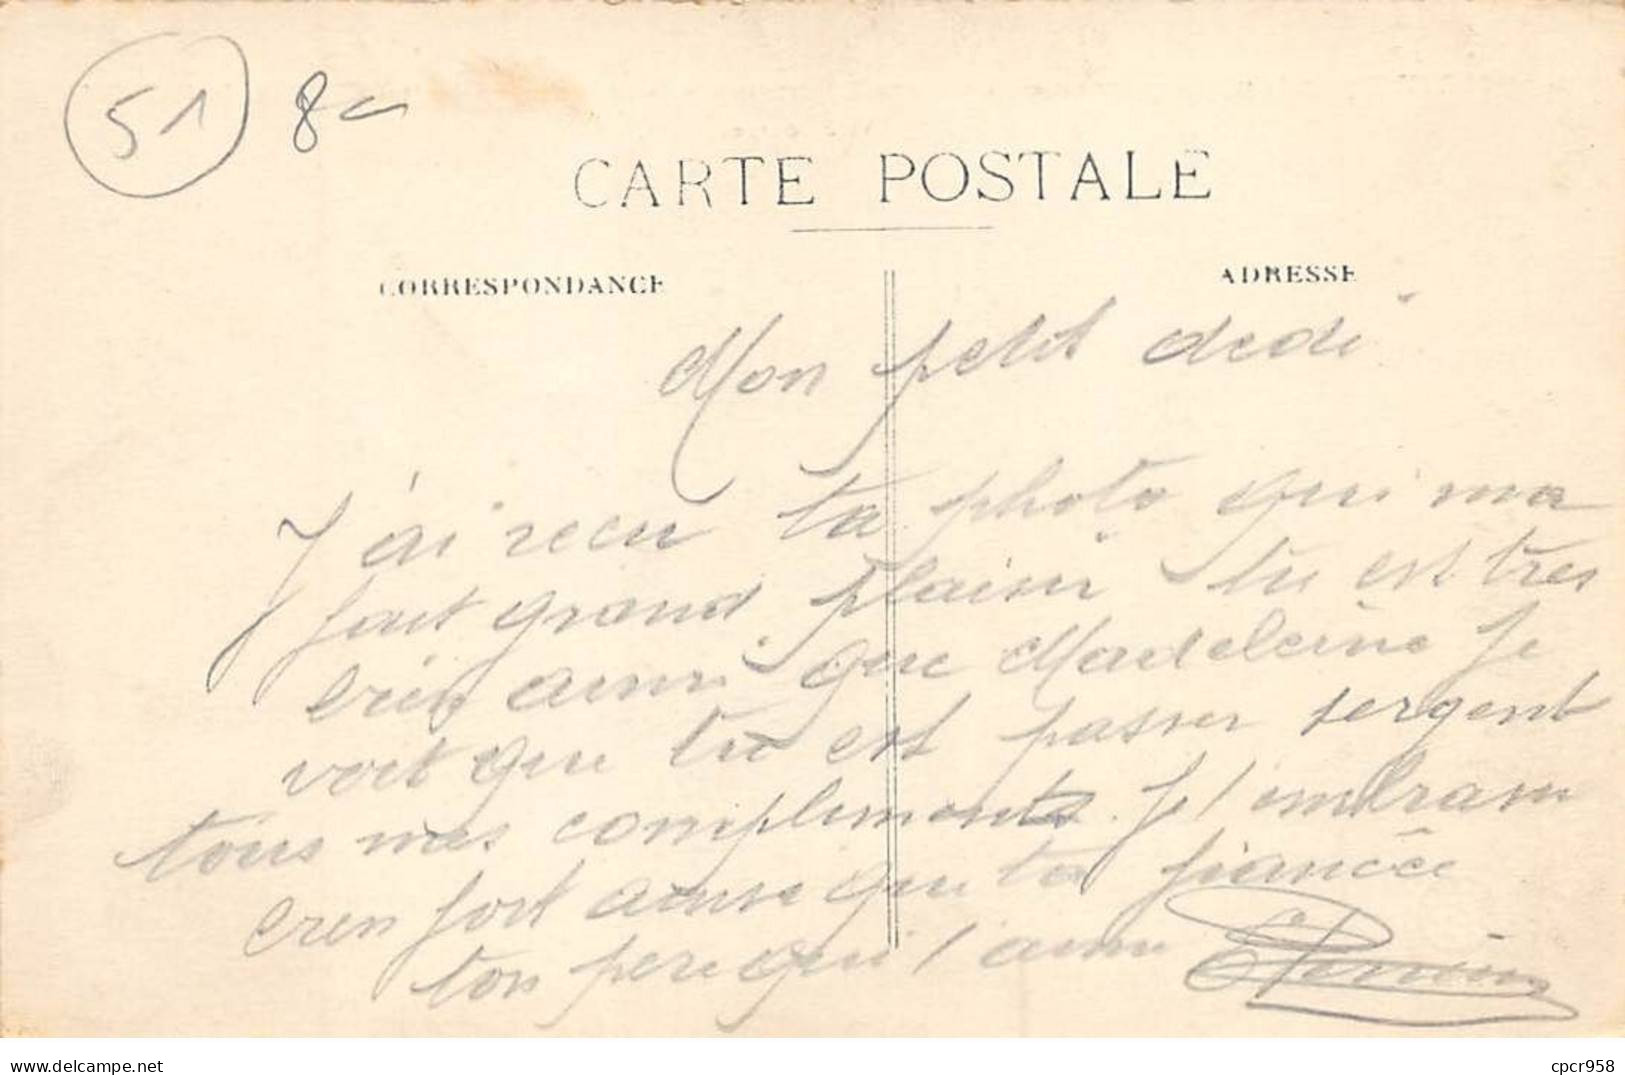 51 8-
CARTE POSTALE
CORRESPONDANCE
ADRESSE
Mon petit dedi
J'ai recu ta photo qui ma
fait grand plaisir tu est tres
bien ausi que Madeleine Je
voit que tu est passer sergent
tous mes compliments. Je t'embrasse
bien fort ausi que ta fiancée
ton pere qui t'aime
delcampe.net
cpcr958